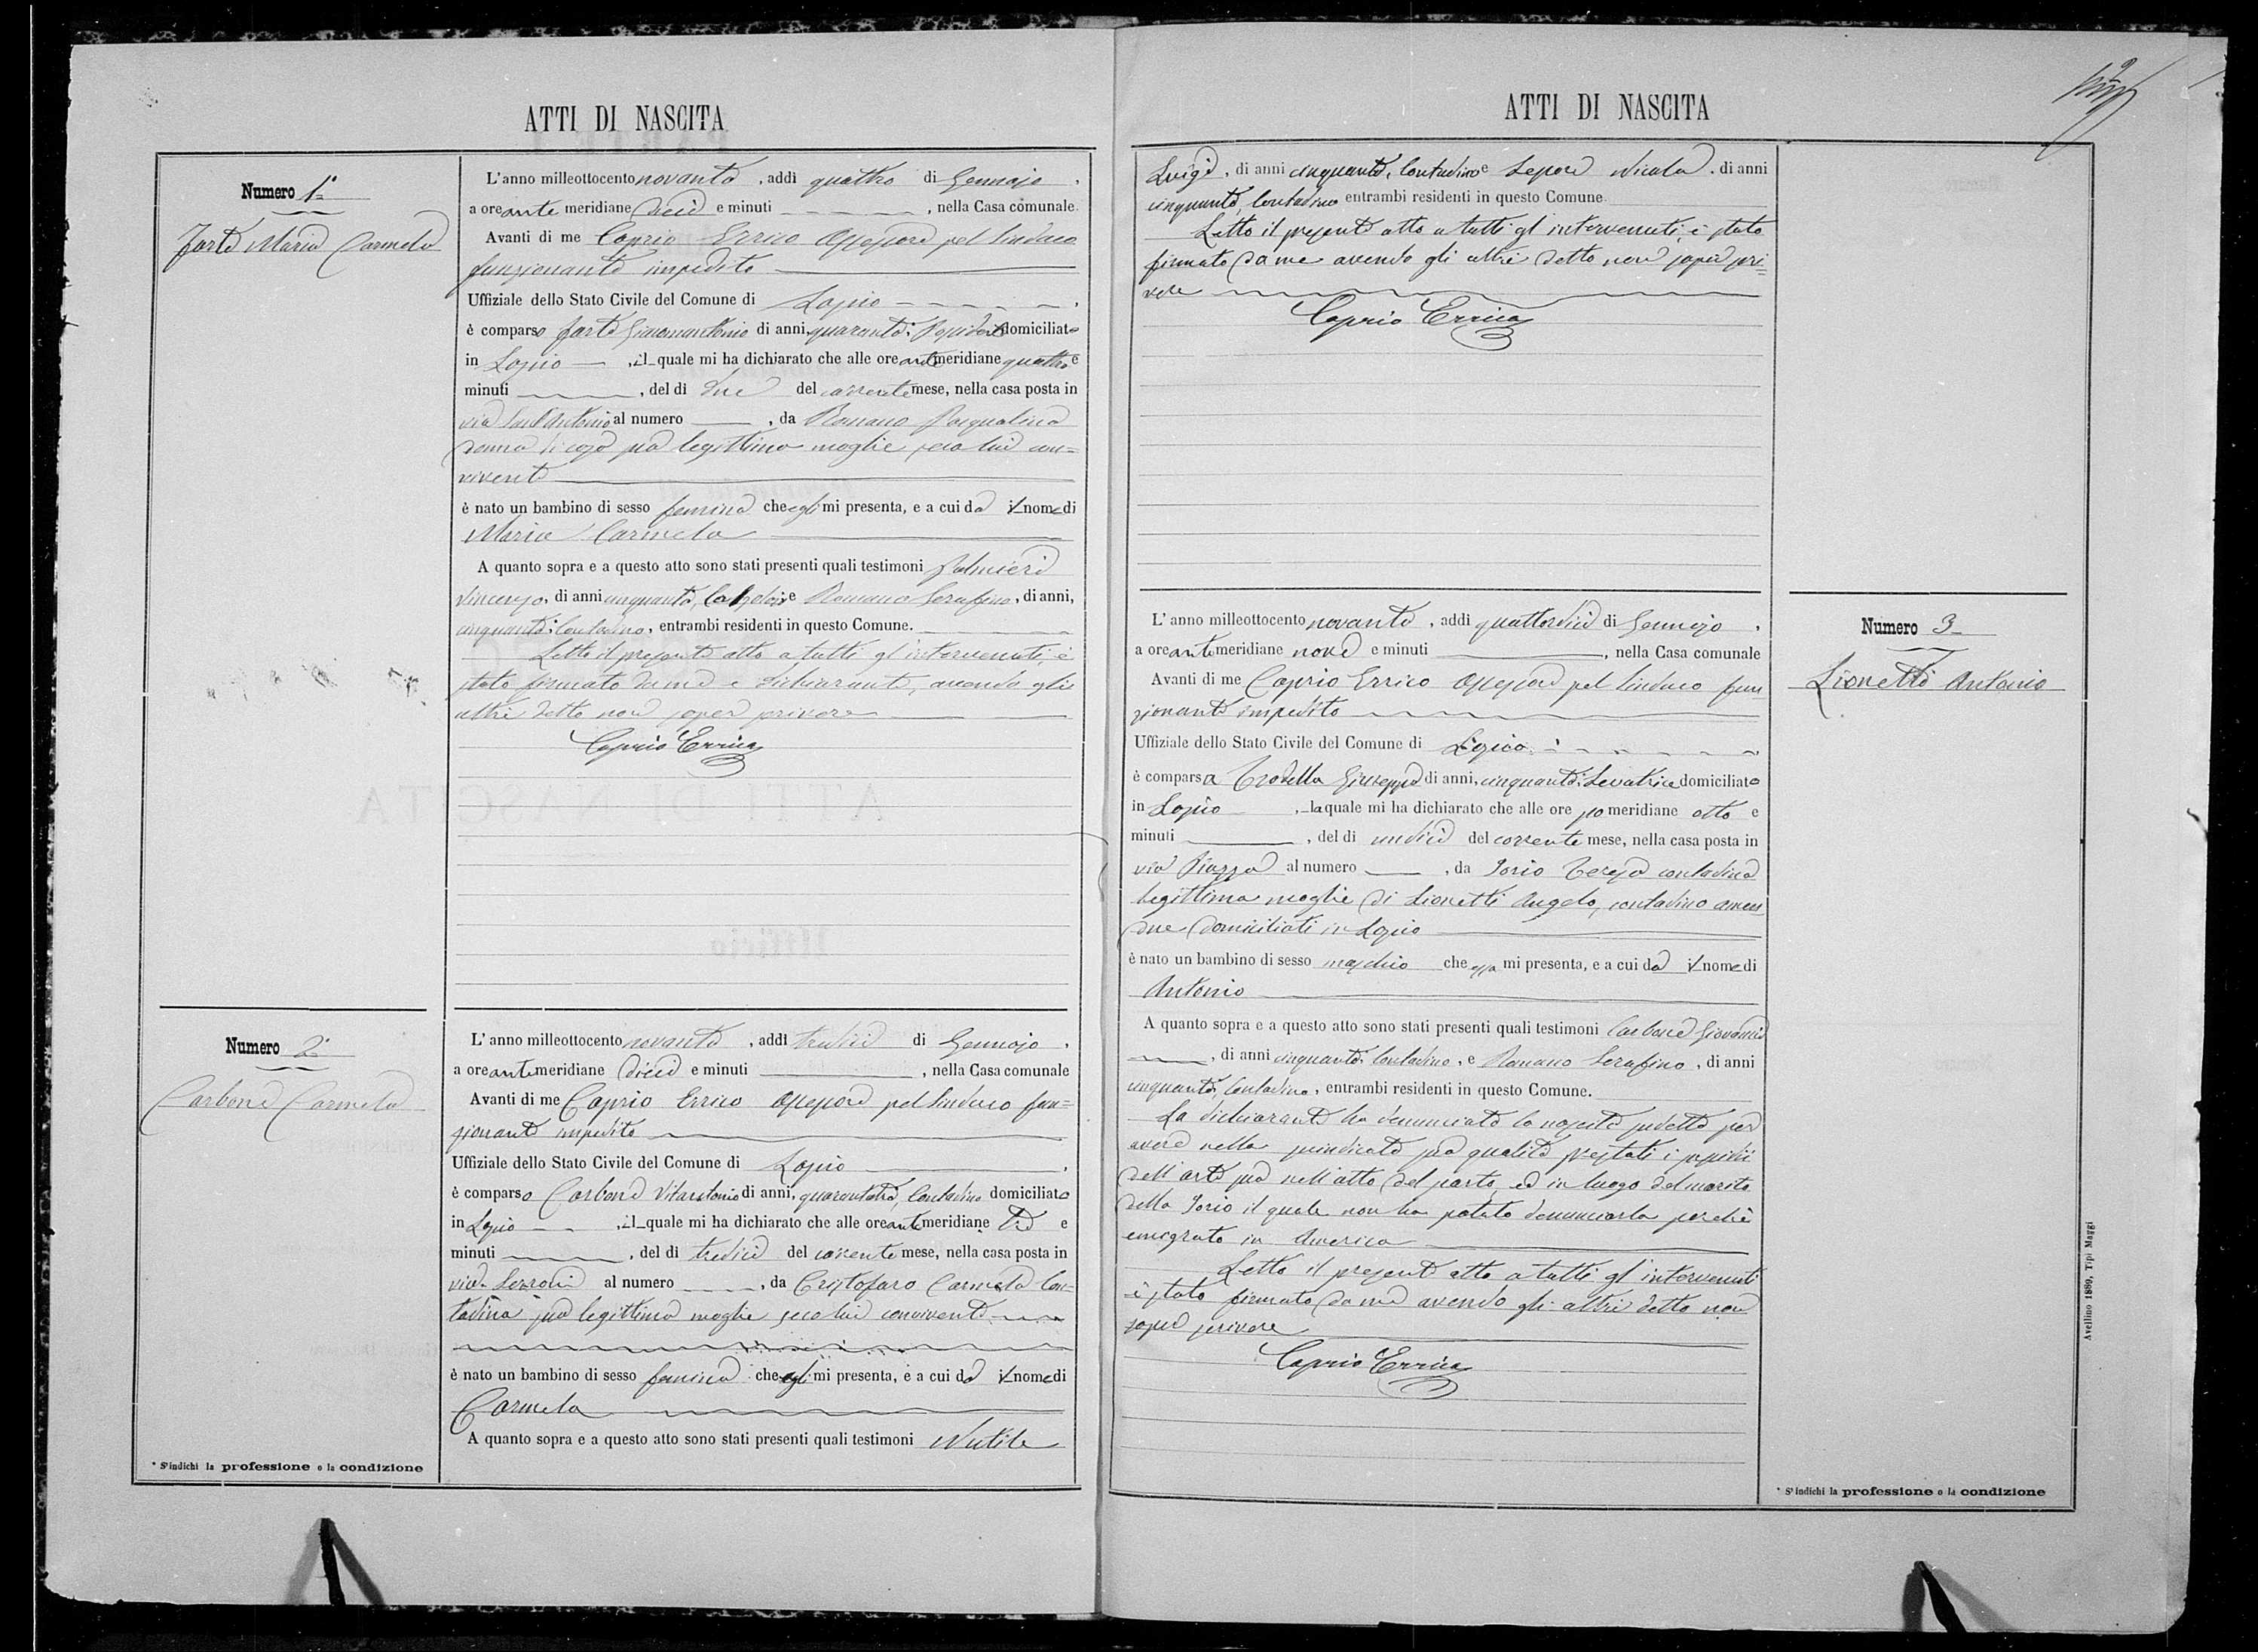 ATTI DI NASCITA
Numero 1°
Forte Maria Carmela
L'anno milleottocento novanta, addì quattro di Gennajo,
a ore ante meridiane dieci e minuti , nella Casa comunale.
Avanti di me Caprio Errico Assessore pel Sindaco
funzionante impedito
Uffiziale dello Stato Civile del Comune di Lapio
è comparso Forte di anni quaranta domiciliato
in Lapio, il quale mi ha dichiarato che alle ore antimeridiane quattro e
minuti , del dì due del corrente mese, nella casa posta in
via Sant'Antonio al numero , da Romano Pasqualina
donna di casa sua legittima moglie, seco lui con=
vivente
è nato un bambino di sesso femina che egli mi presenta, e a cui dà il nome di
Maria Carmela
A quanto sopra e a questo atto sono stati presenti quali testimoni Palmieri
Vincenzo, di anni cinquanta, e Romano Serafino, di anni,
cinquanta, Contadino, entrambi residenti in questo Comune.
Letto il presente atto a tutti gl'intervenuti, è
stato firmato da me e dichiarante, avendo gli
altri detto non saper scrivere
Caprio Errico
Numero 2°
Carbone Carmela
L'anno milleottocento novanta, addì tredici di Gennajo,
a ore antimeridiane dieci e minuti , nella Casa comunale
Avanti di me Caprio Errico Assessore pel Sindaco fun=
zionante impedito
Uffiziale dello Stato Civile del Comune di Lapio
è comparso Carbone Vitantonio di anni, quarantatre, Contadino domiciliato
in Lapio, il quale mi ha dichiarato che alle ore antimeridiane tre e
minuti , del dì tredici del corrente mese, nella casa posta in
via al numero , da Cristofaro Carmela Con=
tadina sua legittima moglie seco lui convivente
è nato un bambino di sesso femina che egli mi presenta, e a cui dà il nome di
Carmela
A quanto sopra e a questo atto sono stati presenti quali testimoni Nutile
* S'indichi la professione o la condizione
ATTI DI NASCITA
Luigi, di anni cinquanta, Contadino e Lepore Nicola, di anni
cinquanta, Contadino entrambi residenti in questo Comune
Letto il presente atto a tutti gl'intervenuti, è stato
firmato da me avendo gli altri detto non saper scri=
vere
Caprio Errico
Numero 3
Lionetti Antonio
L'anno milleottocento novanta, addì quattordici di Gennajo,
a ore antimeridiane nove e minuti , nella Casa comunale
Avanti di me Caprio Errico Assessore pel Sindaco fun
zionante impedito
Uffiziale dello Stato Civile del Comune di Lapio
è comparsa Trodella Giuseppa di anni, cinquanta, Levatrice domiciliata
in Lapio, la quale mi ha dichiarato che alle ore pomeridiane otto e
minuti , del dì undici del corrente mese, nella casa posta in
via Piazza al numero , da Iorio Teresa contadina
legittima moglie di Lionetti Angelo, contadino amen
due domiciliati in Lapio
è nato un bambino di sesso maschio che essa mi presenta, e a cui dà il nome di
Antonio
A quanto sopra e a questo atto sono stati presenti quali testimoni Carbone Giovanni
, di anni cinquanta, Contadino, e Romano Serafino, di anni
cinquanta, Contadino, entrambi residenti in questo Comune.
La dichiarante ha denunciato la nascita sudetta per
avere nella suindicata sua qualità prestati i sussidii
dell'arte sua nell'atto del parto, ed in luogo del marito
della Iorio il quale non ha potuto denunciarla perchè
emigrato in America
Letto il presente atto a tutti gl'intervenuti
è stato firmato da me avendo gli altri detto non
saper scrivere
Caprio Errico
* S'indichi la professione o la condizione
Avellino 1889, Tipi Maggi